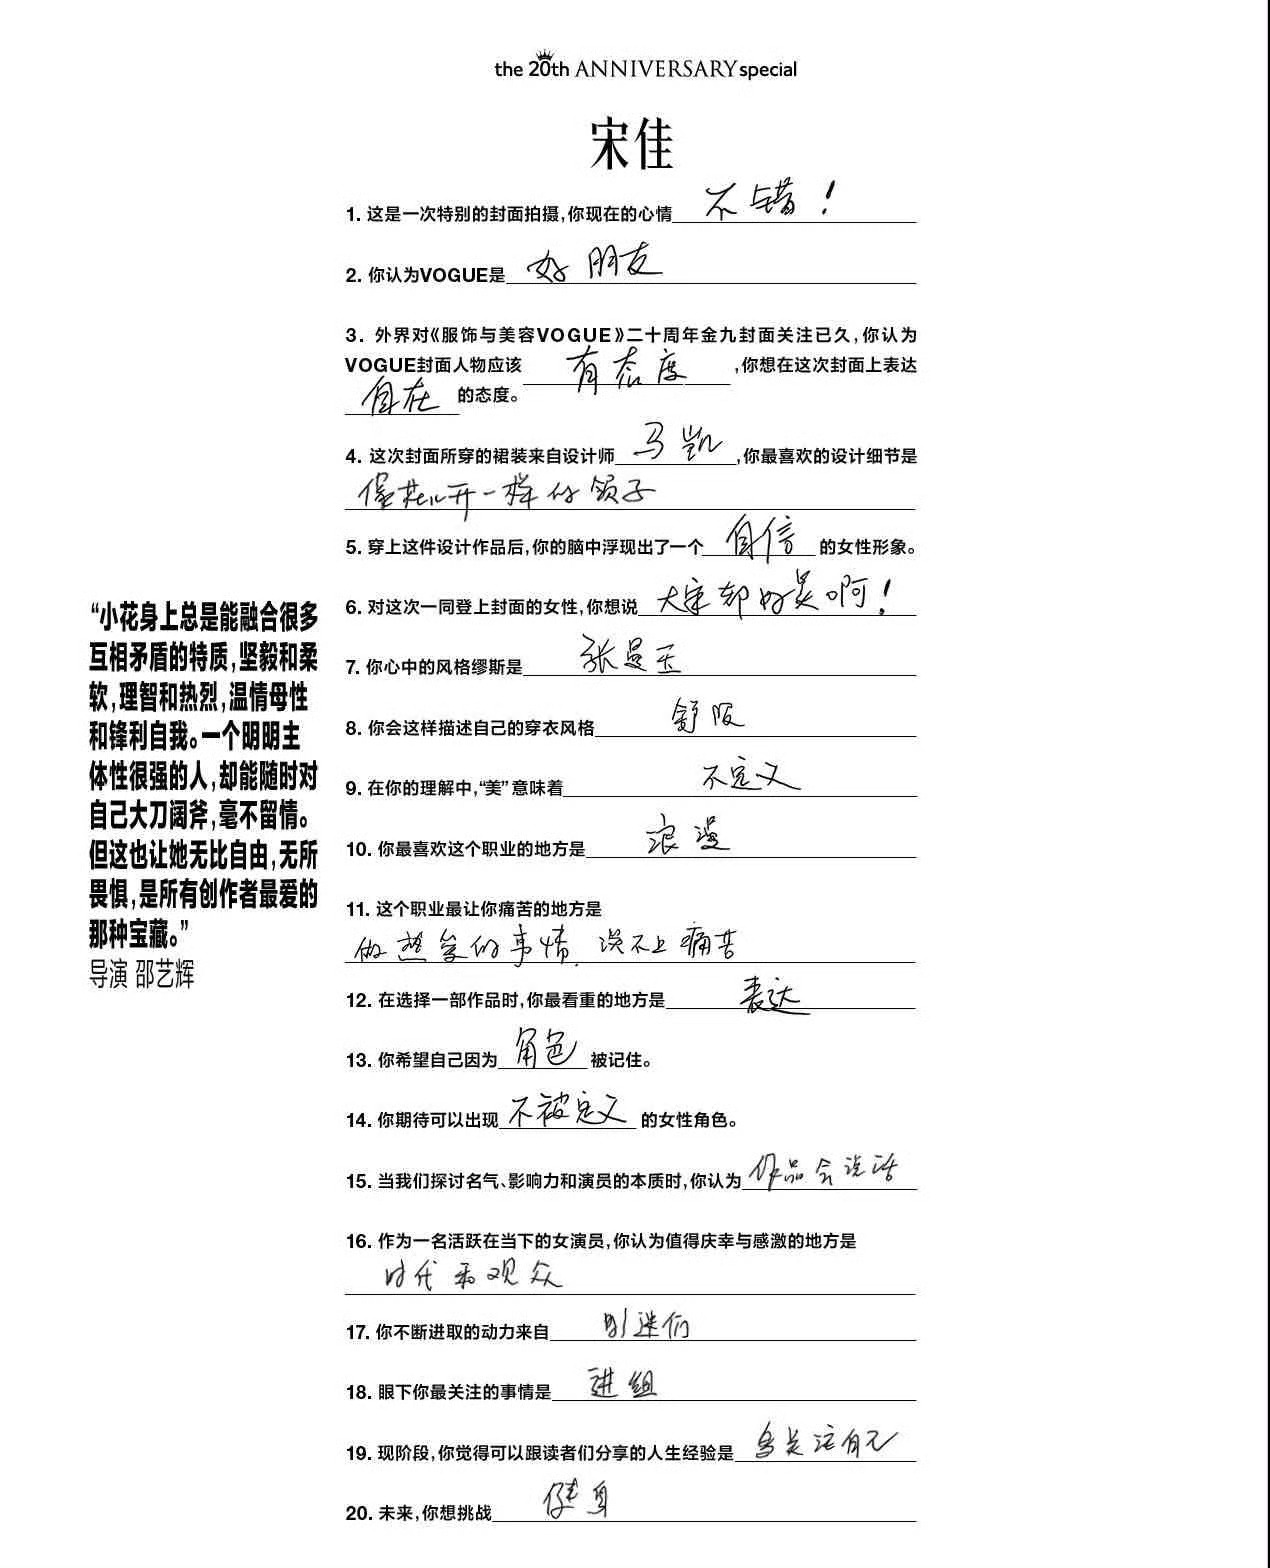 the 20th ANNIVERSARY special
宋佳
1. 这是一次特别的封面拍摄,你现在的心情 不错！
2. 你认为VOGUE是 好朋友
3. 外界对《服饰与美容VOGUE》二十周年金九封面关注已久,你认为
VOGUE封面人物应该 有态度 ,你想在这次封面上表达
自在 的态度。
4. 这次封面所穿的裙装来自设计师 马凯 ,你最喜欢的设计细节是
像花儿开一样的领子
5. 穿上这件设计作品后,你的脑中浮现出了一个 自信 的女性形象。
6. 对这次一同登上封面的女性,你想说 大家都好美啊！
7. 你心中的风格缪斯是 张曼玉
8. 你会这样描述自己的穿衣风格 舒服
9. 在你的理解中,“美”意味着 不定义
10. 你最喜欢这个职业的地方是 浪漫
11. 这个职业最让你痛苦的地方是
做热爱的事情，谈不上痛苦
12. 在选择一部作品时,你最看重的地方是 表达
13. 你希望自己因为 角色 被记住。
14. 你期待可以出现 不被定义 的女性角色。
15. 当我们探讨名气、影响力和演员的本质时,你认为 作品会说话
16. 作为一名活跃在当下的女演员,你认为值得庆幸与感激的地方是
时代和观众
17. 你不断进取的动力来自 影迷们
18. 眼下你最关注的事情是 进组
19. 现阶段,你觉得可以跟读者们分享的人生经验是 多关注自己
20. 未来,你想挑战 健身
“小花身上总是能融合很多
互相矛盾的特质,坚毅和柔
软,理智和热烈,温情母性
和锋利自我。一个明明主
体性很强的人,却能随时对
自己大刀阔斧,毫不留情。
但这也让她无比自由,无所
畏惧,是所有创作者最爱的
那种宝藏。”
导演 邵艺辉